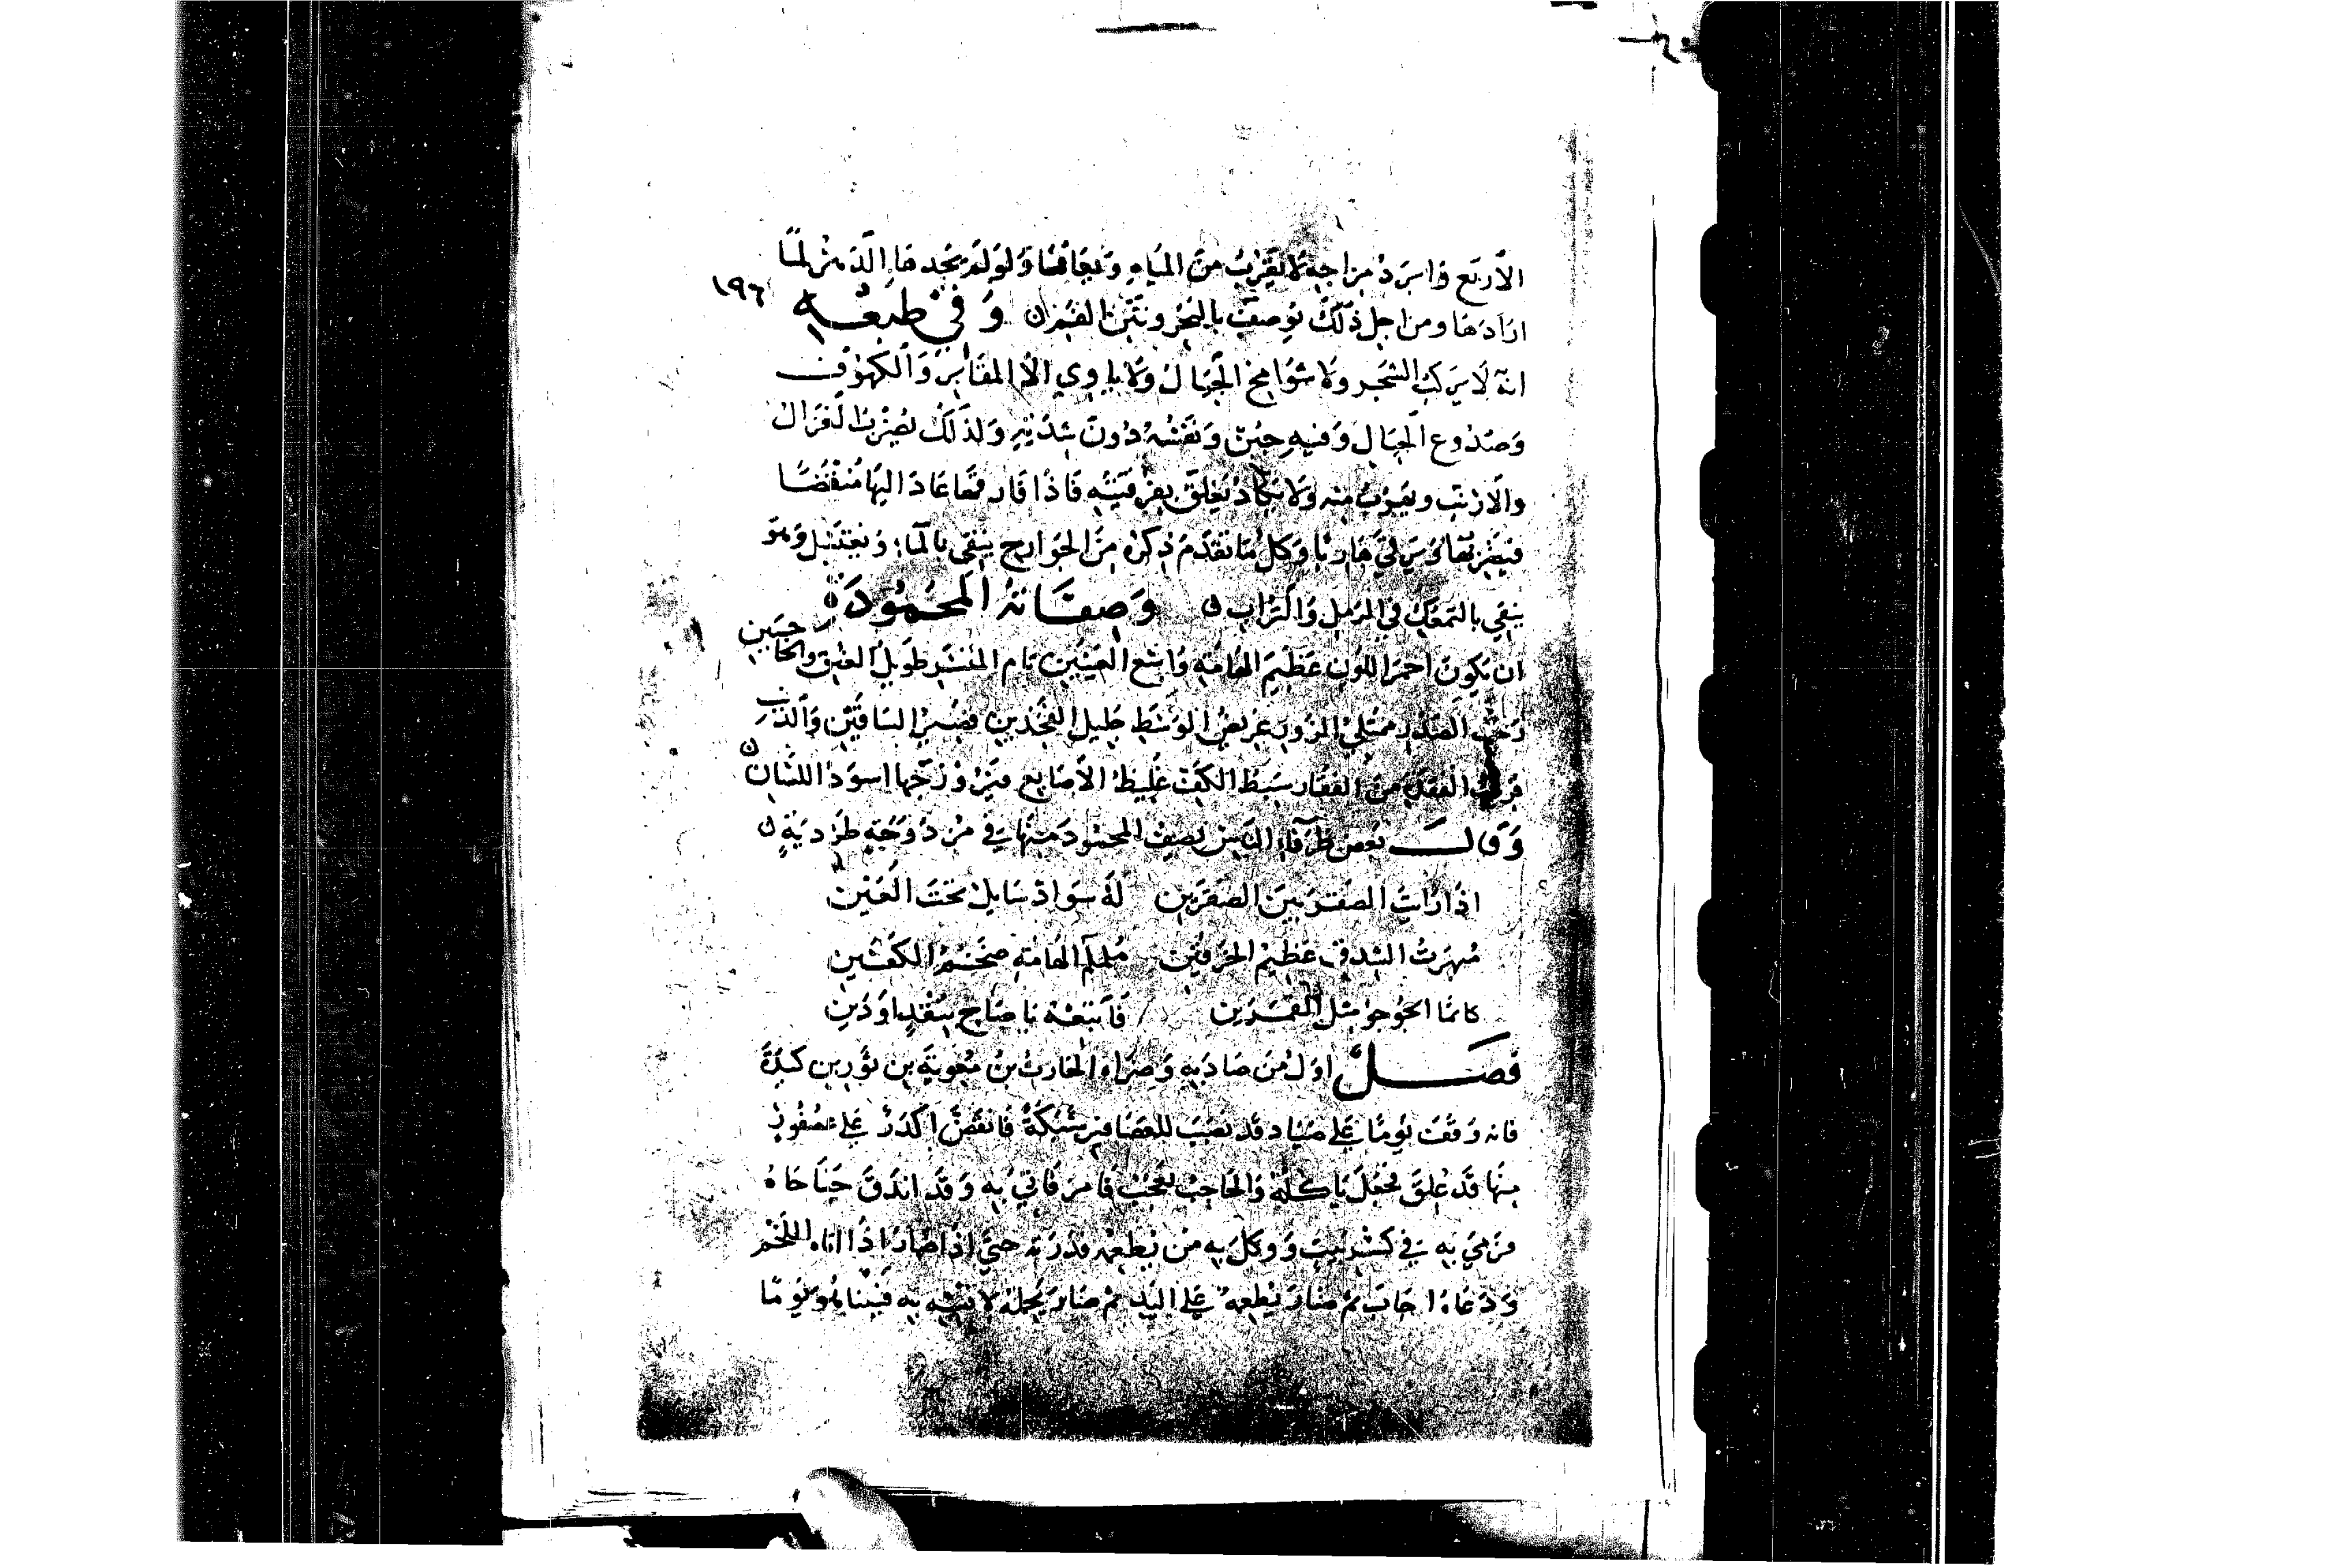 الأربع وابرد مزاجه لا يقرب من المياه ويعافها ولو لم يجدها الدهر لما
١٩٦
ارادها ومن اجل ذلك توصف بالبخر ونتن الفم ن وفي طبعه
انه لا يركب الشجر ولا شوامخ الجبال ولا ياوي الا المقابر والكهوف
وصدوع الجبال وفيه جبن ونفسه دون شدته ولذلك يضرب الغزال
والارنب ويهرب منه ولا يكاد يعلق بفريسته فاذا فارقها عاد اليها منقضا
هاربا وكل ما تقدم ذكره من الجوارح ينقي بالماء ويغتسل وهو
ينقي بالتمعك في الرمل والتراب ن وصفاته المحمودة
ان يكون احمر اللون عظيم الهامه واسع العينين تام المنسر طويل العنق والجناحين
رحب الصدر ممتلي الزور عريض الوسط جليل الفخذين قصير الساقين والذنب
قريب القفدة من الفقار سبط الكف غليظ الأصابع فيروزجها اسود اللسان ن
وقال بعض ظرفاء الناس يصف المحمود منها في مزدوجة طردية ن
اذا رايت الصقر بين الصقرين له سواد سايل تحت العين
مهرت الشدق عظيم الخرقين ململم الهامه ضخم الكفين
كانما الجوجو مثل الفهرين فابتعه يا صاح بنقد او دين
فصل اول من صاد به وضراه الحارث بن معوية بن ثور بن كندة
فانه وقف يوما على صياد قد نصب للعصافير شبكة فانقض اكدر على عصفور
منها قد علق فجعل ياكله والحاجب يعجب فامر فاتي به وقد اندق جناحاه
فرمي به في كسر بيت ووكل به من يطعمه حتى اذا صار اذا اتاه اللحم
ودعاه اجاب ثم صار يطعمه على اليد ثم صار يحمله لا يتشبه به فبينا هو يوما